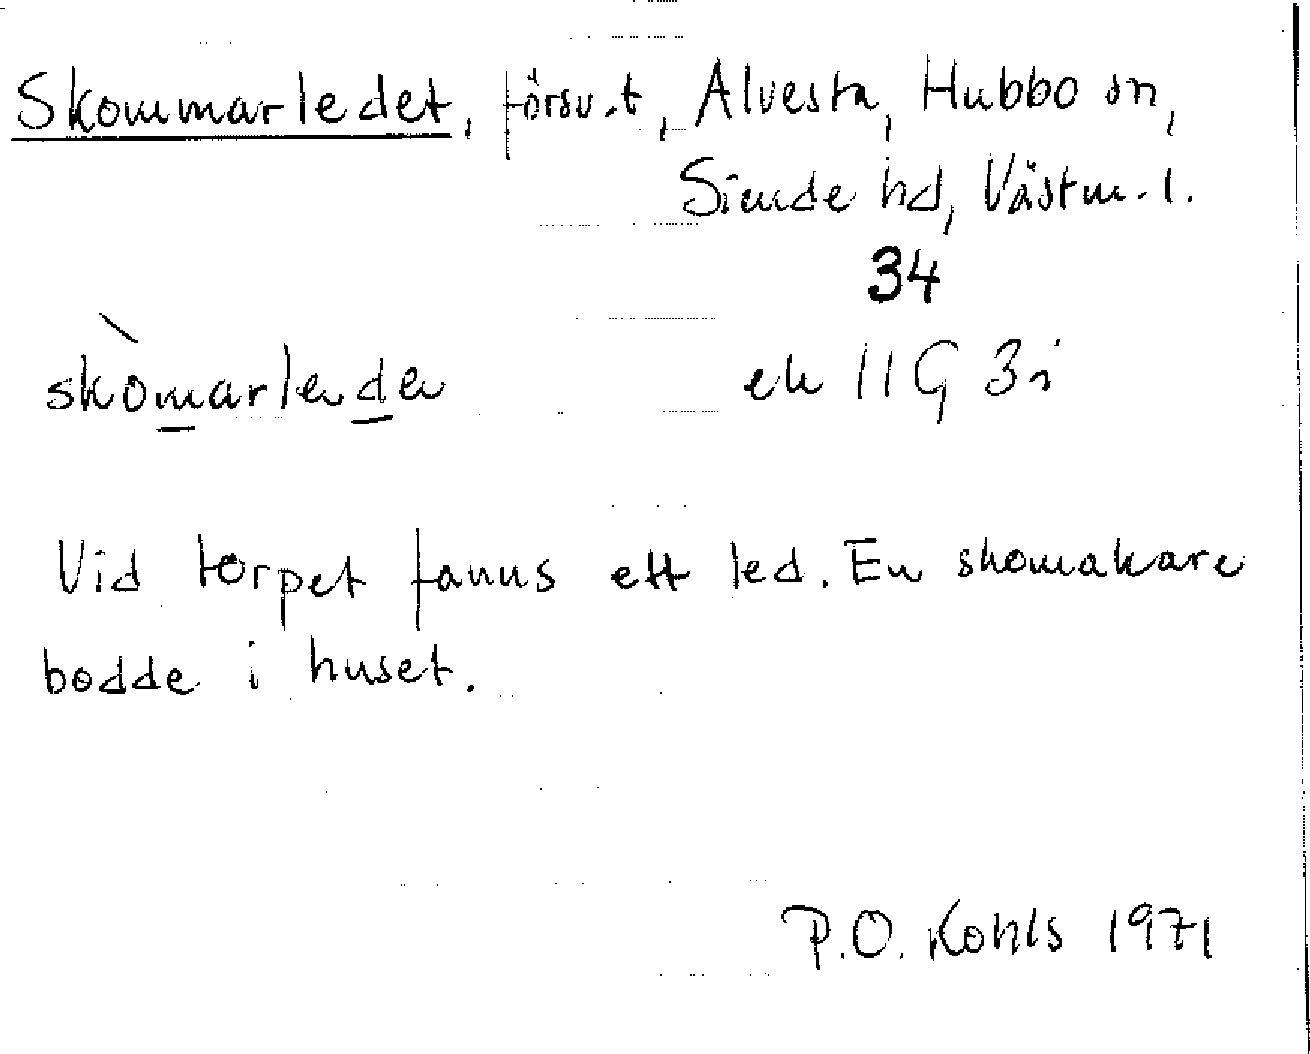 Skommarledet, försv.t, Alvesta, Hubbo sn,
Siende hd, Västm. l.
34
skòmarleden ek 11G 3i
Vid torpet fanns ett led. En skomakare
bodde i huset.
P.O. Kohls 1971